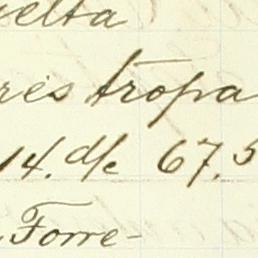 uelta
res tropa
14. d/c 67.5
Forre-